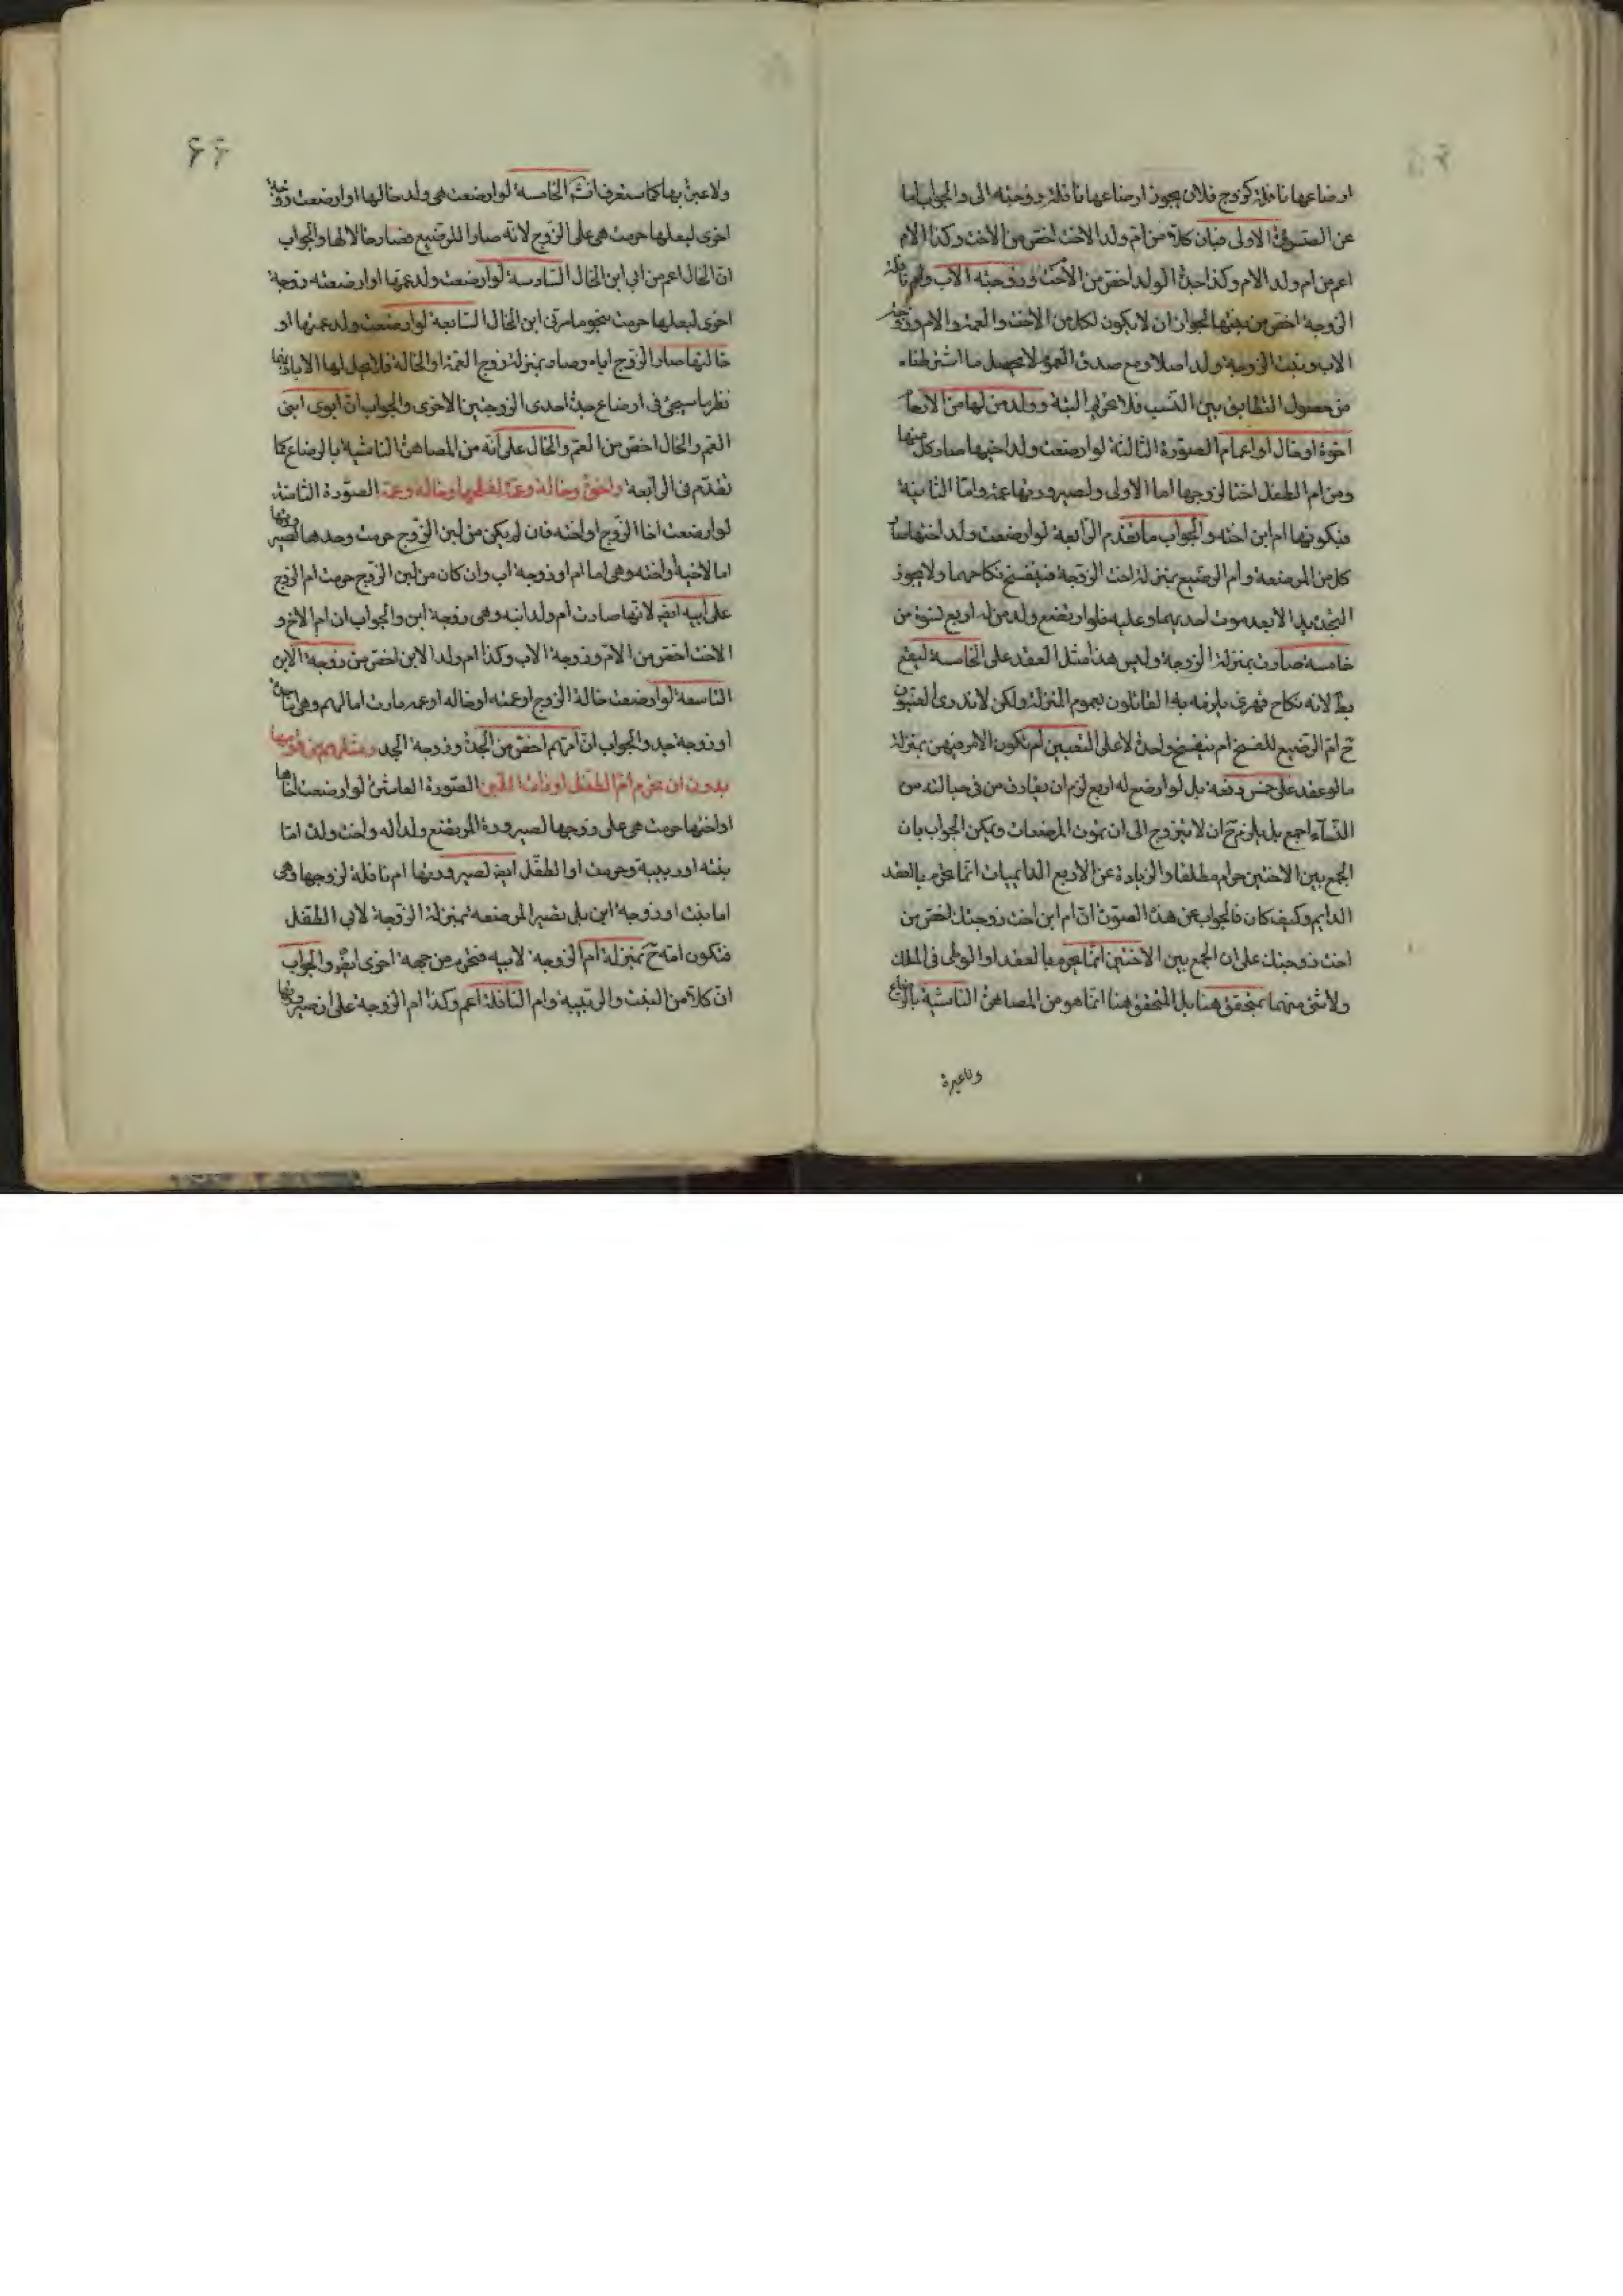 ارضاعها نافلة كزوج فلان يجوز ارضاعها نافلة زوجته الى والجواب اما
عن الصورة الاولى فبان كلا من ام ولد الاخت اخص من الاخت وكذا الام
اعم من ام ولد الام وكذا جدة الولد اخص من الاخت وزوجته الاب وام نافلة
الزوجة اخص من بنتها لجواز ان لا يكون لكل من الاخت والعمة والام وزوجة
الاب وبنت الزوجة ولد اصلا ومع صدق العمو لا يحصل ما اشترطناه
من حصول التطابق بين النسب فلا تحريم البتة وولد من لها من الارحام
اخوة اوخال او اعمام الصورة الثالثة لو ارضعت ولد اخيها صار كل منها
ومن ام الطفل اختا لزوجها اما الاولى ولصيرورتها عمة واما الثانية
فبكونها ام ابن اخته والجواب ما تقدم الرابعة لو ارضعت ولد اختها صا
كل من المرضعة وام الرضيع بمنزلة اخت الزوجة فينفسخ نكاحهما ولا يجوز
التجديد الا بعد موت احديهما وعليه فلو ارتضع ولد من له اربع نسوة من
خامسة صارت بمنزلة الزوجة وليس هذا مثل العقد على الخامسة ليقع
بط لانه نكاح قهري يلزمه به القائلون بعموم المنزلة ولكن لا ندري لتعيين
ح ام الرضيع للفسخ ام ينفسخ واحدة لا على التعيين ام نكون الامر فيهن بمنزلة
ما لو عقد على خمس دفعة بل لو ارضع له اربع لزم ان يفارق من في حبالته من
النساء اجمع بل يلزم ح ان لا يتزوج الى ان يموت المرضعات ويمكن الجواب بان
الجمع بين الاختين حرام مطلقا والزيادة عن الاربع الدايميات انما تحرم بالعقد
الدايم وكيف كان فالجواب عن هذه الصورة ان ام ابن اخت زوجتك اخص من
اخت زوجتك على ان الجمع بين الاختين انما يحرم بالعقد او الوطى في الملك
ولا شئ منهما بمتحقق هنا بل المتحقق هنا انما هو من المصاهرة الناشية بالرضاع
ولا عبرة
۶۶
ولا عبرة بها كما ستعرف انش الخامسة لو ارضعت هى ولد خالها او ارضعت زوجة
اخرى لبعلها حرمت هى على الزوج لانه صار ابا للرضيع فصار خالا لها والجواب
ان الخال اعم من ابي ابن الخال السادسة لو ارضعت ولد عمها او ارضعته زوجة
اخرى لبعلها حرمت بنحو ما مر في ابن الخال السابعة لو ارضعت ولد عمتها او
خالتها صار الزوج اباه وصار بمنزلة زوج العمة او الخالة فلا يحل لها الا باذنها
نظر ما سيجئ في ارضاع جدة احدى الزوجتين الاخرى والجواب ان ابوى ابنى
العم والخال اخص من العم والخال على انه من المصاهرة الناشية بالرضاع كما
تقدم في الرابعة واخرى وخالة وعمة لفعلها وخاله وعمه الصورة الثامنة
لو ارضعت اخا الزوج او اخته فان لم يكن من لبن الزوج حرمت وحدها لصيرورتها
اما لاخيه او اخته وهى اما ام او زوجة اب وان كان من لبن الزوج حرمت ام الزوج
على ابيه ايض لانها صارت ام ولد ابنه وهى زوجة ابن والجواب ان ام الاخ و
الاخت اخص من الام وزوجة الاب وكذا ام ولد الابن اخص من زوجة الابن
التاسعة لو ارضعت خالة الزوج او عمته او خاله او عمه صارت اما لهم وهى اما جدة
او زوجة جد والجواب ان امهم اخص من الجدة وزوجة الجد
بدون ان تحرم ام الطفل او ذات اللبن الصورة العاشرة لو ارضعت اخاها
او اختها حرمت هى على زوجها لصيرورة المرتضع ولدا له واخت ولدة اما
بنته او ربيبة وحرمت او الطفل ايض لصيرورتها ام نافلة لزوجها وهى
اما بنت او زوجة ابن بل بصير المرضعة بمنزلة الزوجة لابي الطفل
فتكون امه ح بمنزلة ام الزوجة لابيه فتحرم من جهة اخرى ايض والجواب
ان كلا من البنت والربيبة وام النافلة اعم وكذا ام الزوجة على ان صيرورتها